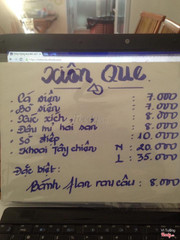 Xiên Que
- Cá viên : 7.000
- Bò viên : 7.000
- Xúc xích : 8.000
- Đậu hủ hải sản : 8.000
- Sò điệp : 10.000
- Khoai Tây chiên N : 20.000
L : 35.000
Đặc biệt:
Bánh flan rau câu : 8.000